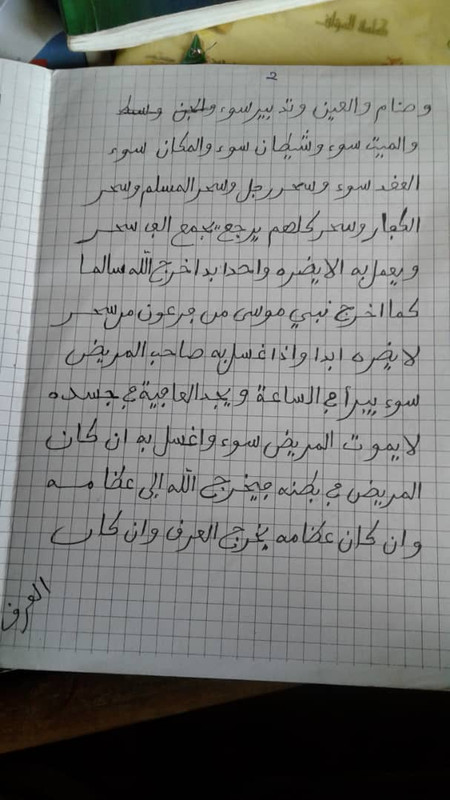 2
وصنام والعين وتدبير سوء والجن وسط
والميت سوء وشيطان سوء والمكان سوء
العقد سوء وسحر رجل وسحر المسلم وسحر
الكفار وسحر كلهم يرجع يجمع الف سحر
ويعمل به الا يضره واحدا بدا خرج الله سالما
كما اخرج نبي موسى من فرعون من سحر
لا يضره ابدا واذا غسل به صاحب المريض
سوء يبرأ في الساعة ويجد العافية في جسده
لا يموت المريض سوء واغسل به ان كان
المريض في بطنه فيخرج الله الى عظامه
وان كان عظامه يخرج العرق وان كان
العرق